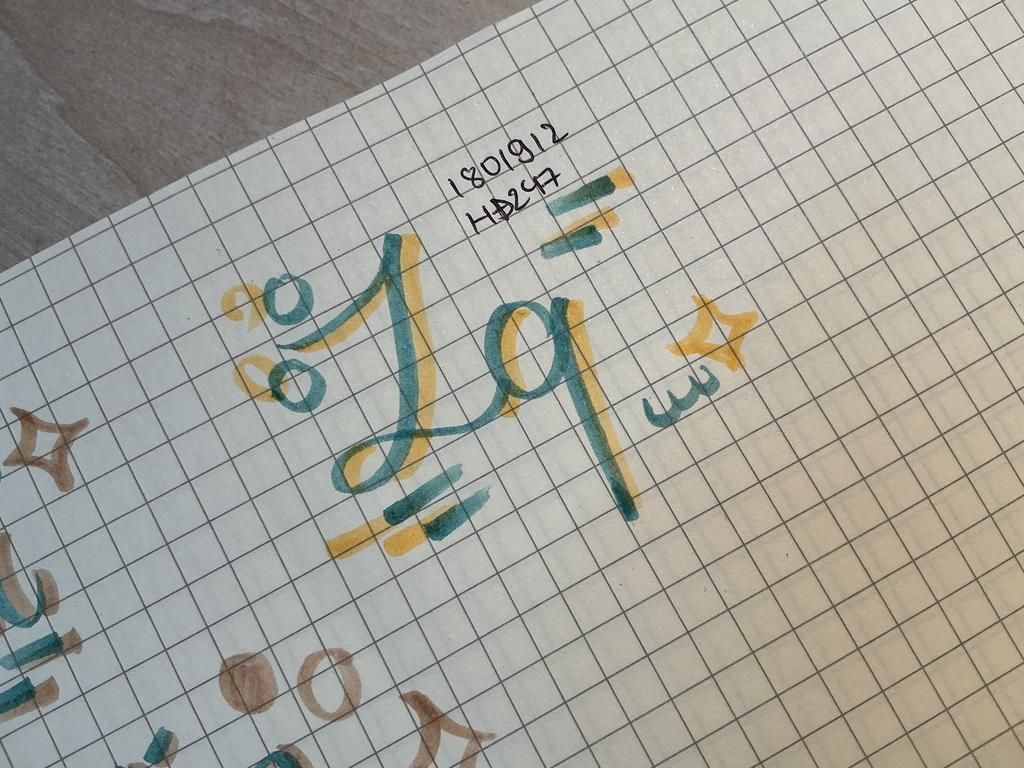 1801912
HD247
Lq